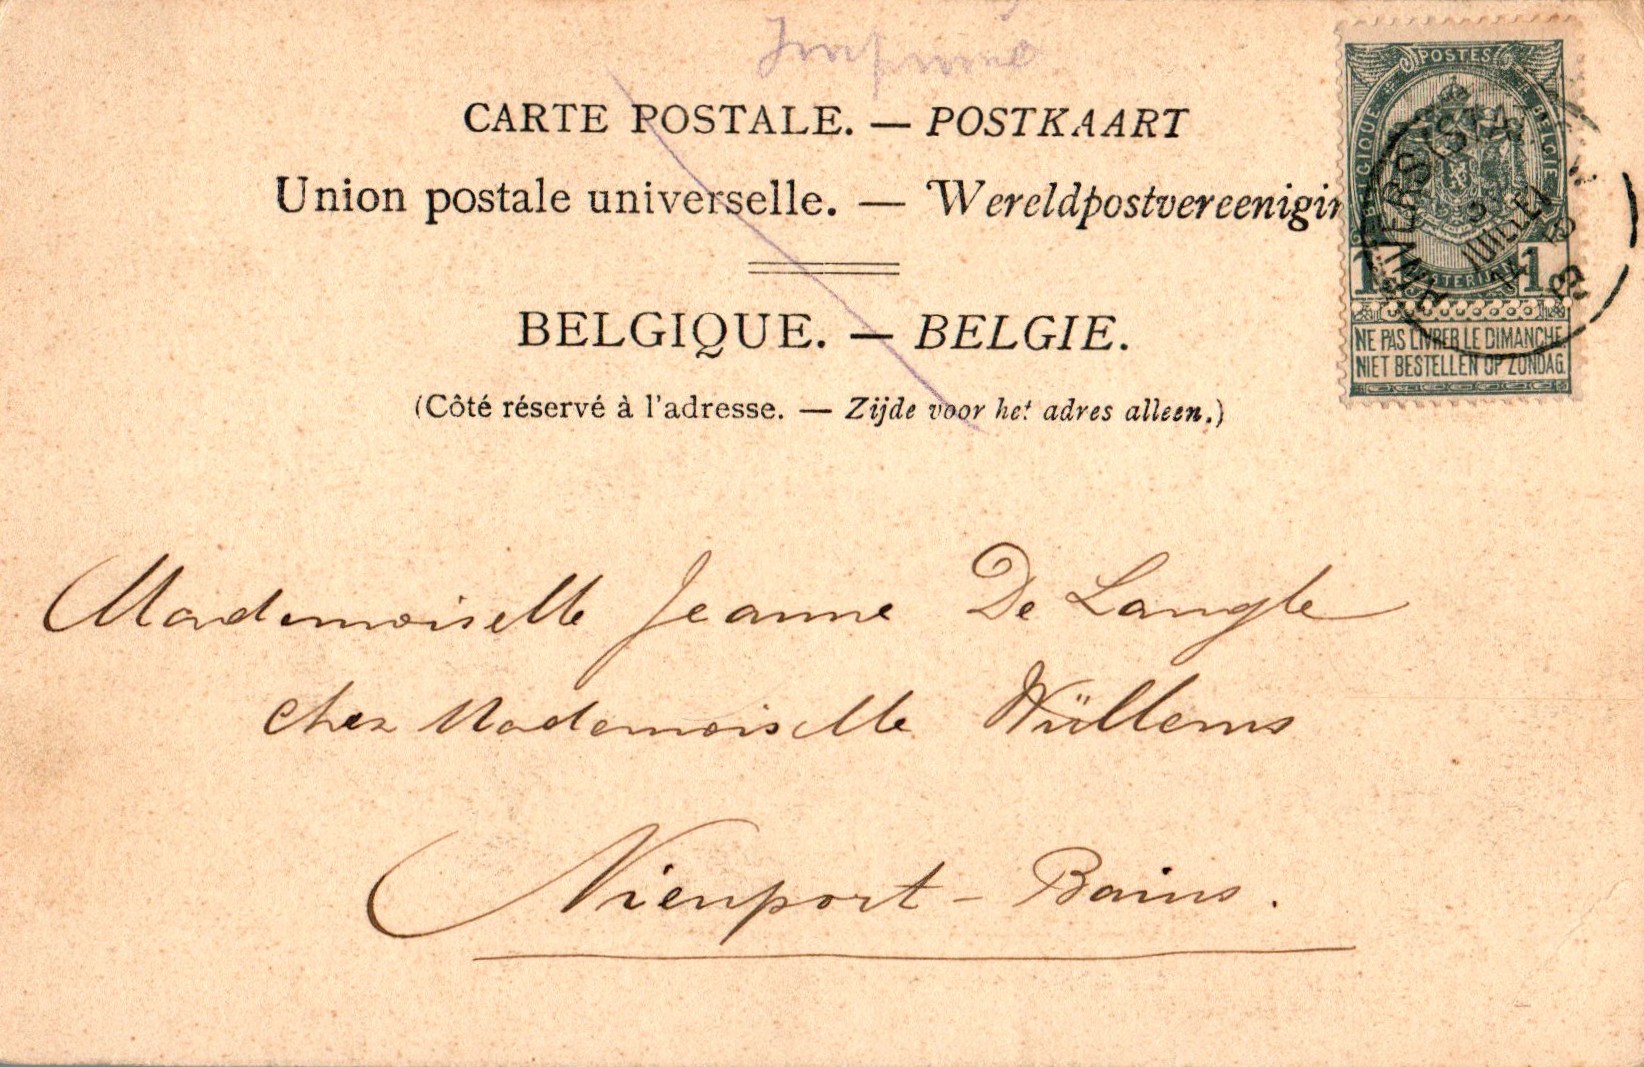 Imprimé
CARTE POSTALE. — POSTKAART
Union postale universelle. — Wereldpostvereenigin
BELGIQUE. — BELGIE.
(Côté réservé à l'adresse. — Zijde voor het adres alleen.)
POSTES
BELGIE
1 POSTERIJEN 1
NE PAS LIVRER LE DIMANCHE.
NIET BESTELLEN OP ZONDAG.
ANVERS
JUILLET
Mademoiselle Jeanne De Langle
chez Mademoiselle Wüllems
Nieuport-Bains.